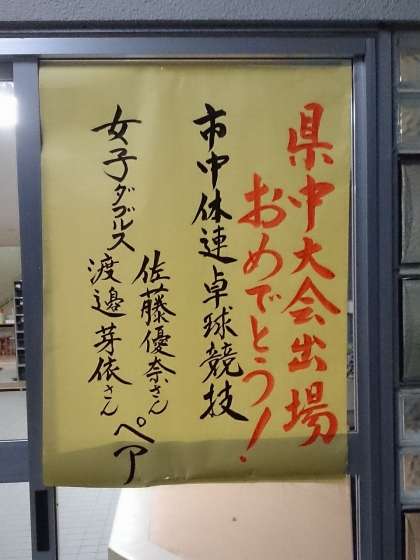 県中大会出場
おめでとう!
市中体連卓球競技
女子ダブルス
佐藤優奈さん
渡邉芽依さん
ペア